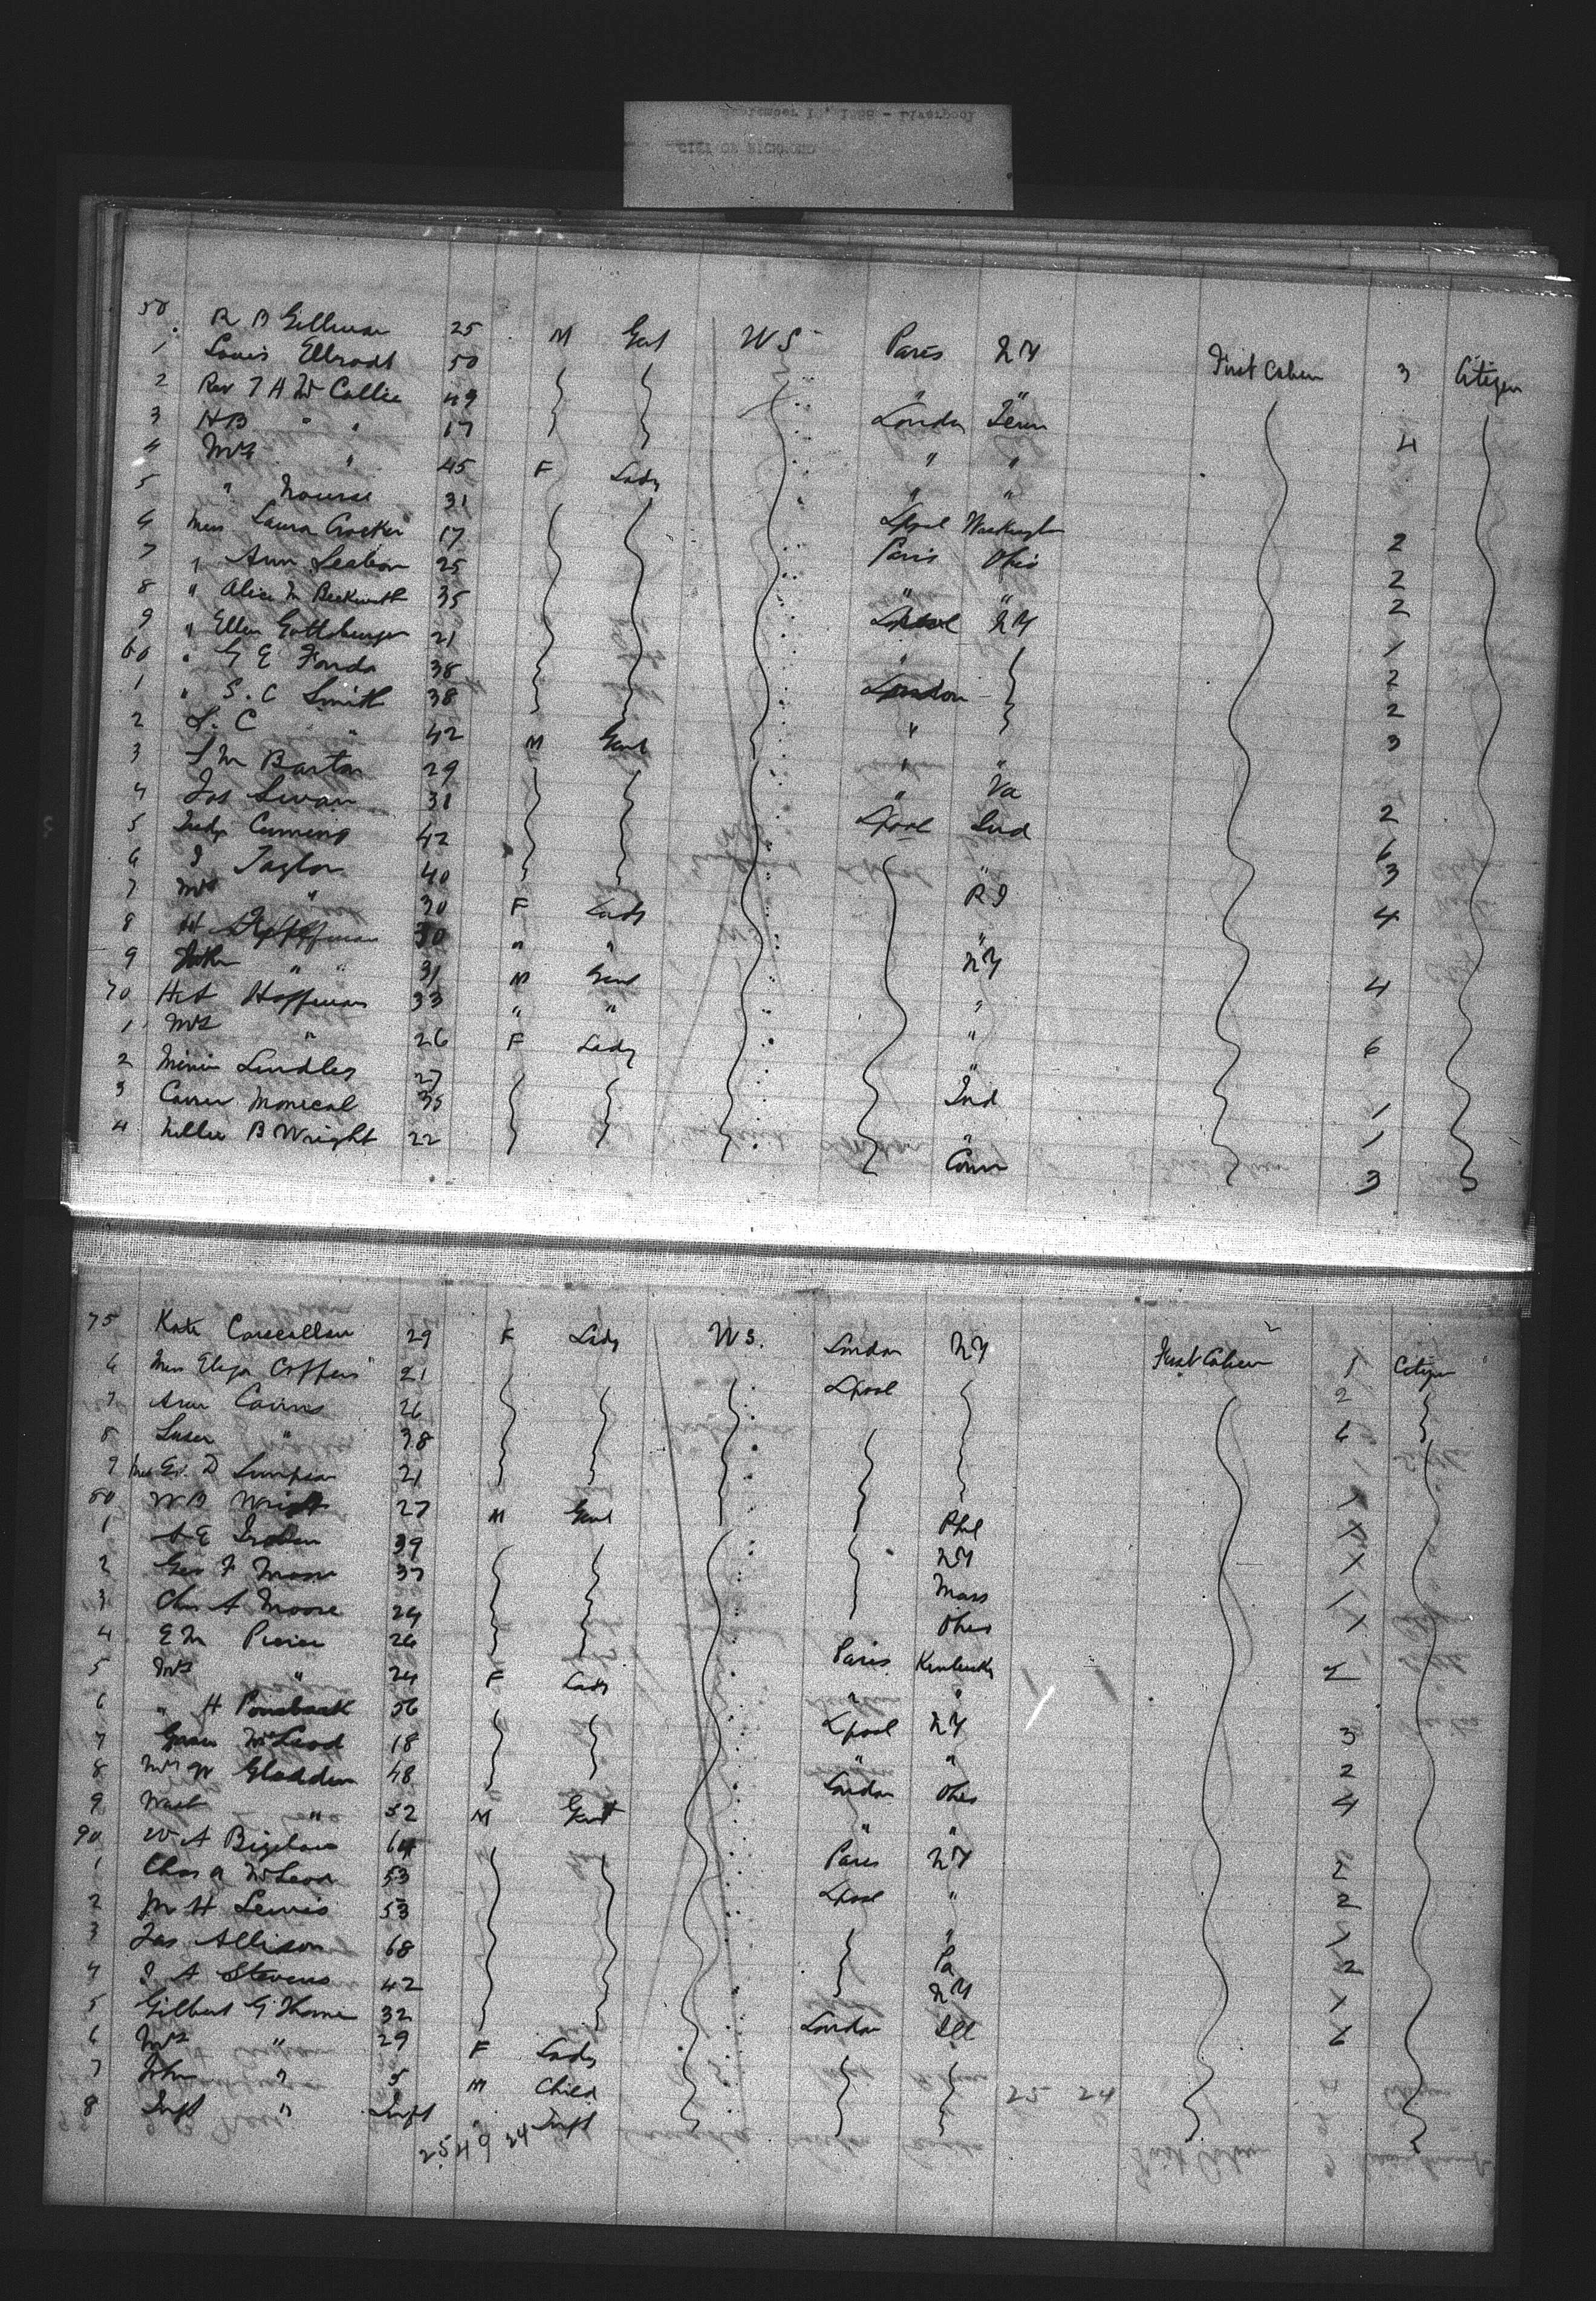 50 R B Gillman 25 M Gent W S Paris N Y First Cabin 3 Citizen
1 Louis Ellrodt 50
2 Rev T H W Callie 49 London Tenn
3 H B " " 17 " " 4
4 Mrs " 45 F Lady " "
5 " Nourse 31 Lpool Washington
6 Miss Laura Crocker 17 Paris Ohio 2
7 " Ann 25 " " 2
8 " Alice M Beckwith 35 Lpool N Y 2
9 " Ellen Gottsberger 21 " 1
60 " G E Fonda 38 London 2
1 " S. C Smith 38 " 2
2 L. C " 42 M Gent " " 3
3 S M Barton 29 " Va
4 Jas Swan 31 Lpool Ind 2
5 Judge Cumming 42 " 6
6 J Taylor 40 R I 3
7 Mrs " 30 F Lady " 4
8 H Hoffman 30 " " N Y
9 " " 31 M Gent " 4
70 H A Hoffman 33 " " "
1 Mrs " 26 F Lady " 6
2 Minnie Lindley 27 Ind
3 Carrie Monical 35 " 1
4 Nellie B Wright 22 Conn 3
75 Kate 29 F Lady W S. London N Y First Cabin 1 Citizen
6 Miss Eliza Coffin 21 Lpool 2
7 Ann Cairns 26 6
8 Susan " 38
9 Miss D Simpson 21 1
80 W B Wright 27 M Gent Phil 1
1 A E 39 N Y 1
2 Geo F Mason 37 Mass 1
3 Chas A Moore 24 Ohio 1
4 E M Pierce 26 Paris Kentucky 2
5 Mrs " 24 F Lady " "
6 " H 56 Lpool N Y 3
7 McLeod 18 " " 2
8 Mrs W Gladden 48 London Ohio 4
9 Wash " 52 M Gent " "
90 W A Bigelow 64 Paris N Y 2
1 Chas A McLeod 53 Lpool " 2
2 M H Lewis 53 " 1
3 Jas Allison 68 Pa 2
4 J A Stevens 42 N Y 1
5 Gilbert G Thorne 32 London Ill 6
6 Mrs " 29 F Lady
7 John " 5 M Child 25 24
8 Inft " Inft " Inft
25 49 24